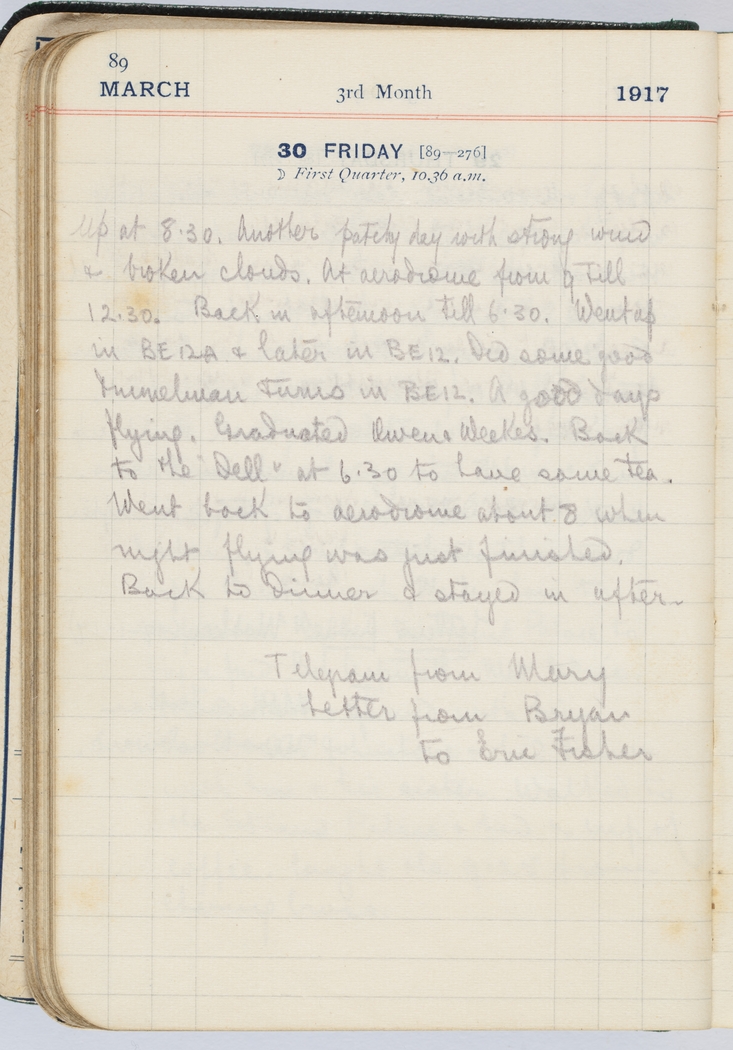 89
MARCH 3rd Month 1917
30 FRIDAY [89—276]
☽ First Quarter, 10.36 a.m.
Up at 8.30. Another patchy day with strong wind
& broken clouds. At aerodrome from 9 till
12.30. Back in afternoon till 6.30. Went up
in BE12A & later in BE12. Did some good
Immelman turns in BE12. A good days
flying. Graduated Owen & Weekes. Back
to the "Dell" at 6.30 to have some tea.
Went back to aerodrome about 8 when
night flying was just finished.
Back to dinner & stayed in after.
Telegram from Mary
Letter from Bryan
to Eric Fisher